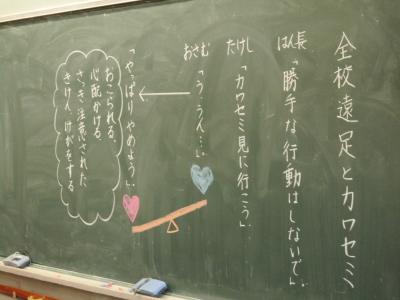 全校遠足とカワセミ
はん長「勝手な行動はしないで」
たけし「カワセミ見に行こう」
おさむ「う、うん…。」
「やっぱりやめよう」
おこられる、
心配かける、
さっき注意された
きけん、けがをする